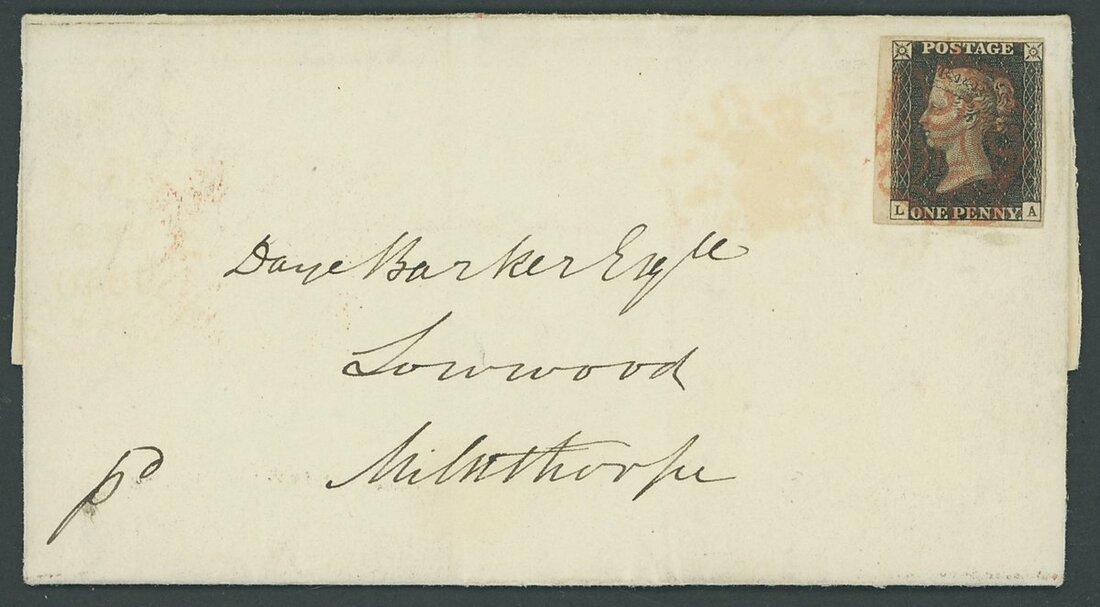 POSTAGE
L ONE PENNY A
Daye Barker Esqre
Lowwood
Milnthorpe
pd